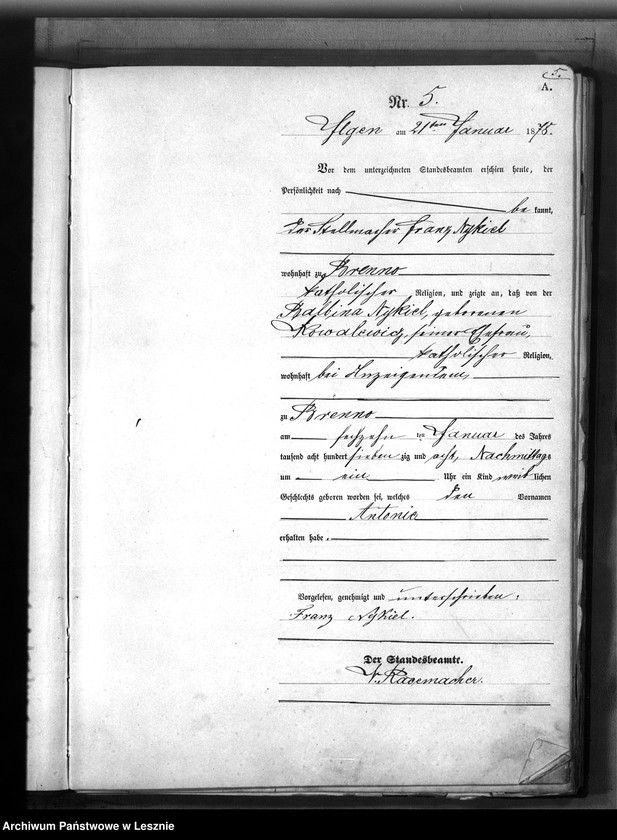 5.
A.
Nr. 5.
Ilgen am 21ten Januar 1878.
Vor dem unterzeichneten Standesbeamten erschien heute, der
Persönlichkeit nach
be kannt,
der Stellmacher Franz Nykiel
wohnhaft zu Brenno
katholischer Religion, und zeigte an, daß von der
Balbina Nykiel, geborenen
Kowalewicz, seiner Ehefrau,
katholischer Religion,
wohnhaft bei Anzeigendem,
zu Brenno
am sechzehn ten Januar des Jahres
tausend acht hundert sieben zig und acht, Nachmittags
um ein Uhr ein Kind weib lichen
Geschlechts geboren worden sei, welches den Vornamen
Antonie
erhalten habe.
Vorgelesen, genehmigt und unterschrieben.
Franz Nykiel.
Der Standesbeamte.
Rademacher.
Archiwum Państwowe w Lesznie